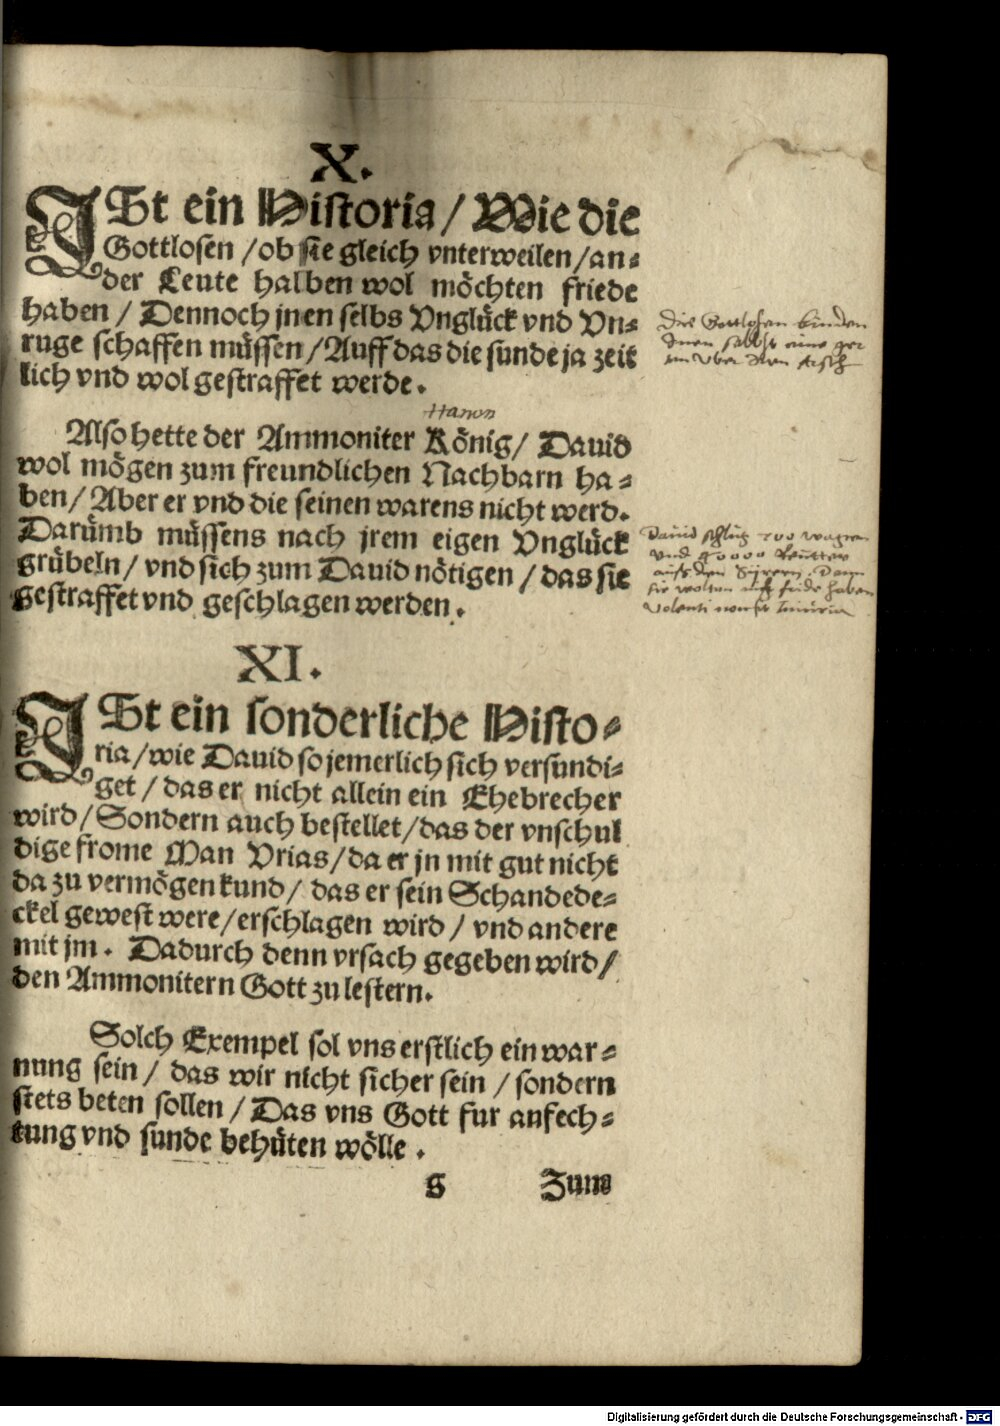 X.
ISt ein Historia / Wie die
Gottlosen / ob sie gleich vnterweilen / an-
der Leute halben wol möchten friede
haben / Dennoch jnen selbs Vnglück vnd Vn-
ruge schaffen müssen / Auff das die sunde ja zeit
lich vnd wol gestraffet werde.
Die Gottlosen binden
Ihnen selbst eine
vber den Arsch
Hanon
Also hette der Ammoniter König / Dauid
wol mögen zum freundlichen Nachbarn ha-
ben / Aber er vnd die seinen warens nicht werd.
Darümb müssens nach jrem eigen Vnglück
grübeln / vnd sich zum Dauid nötigen / das sie
gestraffet vnd geschlagen werden.
Dauid schlug 700 wagen
vnd 40000 Reutter
auß den Syrern, Dann
sie wolten nicht fride haben
Volenti non fit Iniuria
XI.
ISt ein sonderliche Histo-
ria / wie Dauid so jemerlich sich versundi-
get / das er nicht allein ein Ehebrecher
wird / Sondern auch bestellet / das der vnschul
dige frome Man Vrias / da er jn mit gut nicht
da zu vermögen kund / das er sein Schandede-
ckel gewest were / erschlagen wird / vnd andere
mit jm. Dadurch denn vrsach gegeben wird /
den Ammonitern Gott zu lestern.
Solch Exempel sol vns erstlich ein war-
nung sein / das wir nicht sicher sein / sondern
stets beten sollen / Das vns Gott fur anfech-
tung vnd sunde behüten wölle.
S Zum
Digitalisierung gefördert durch die Deutsche Forschungsgemeinschaft - DFG